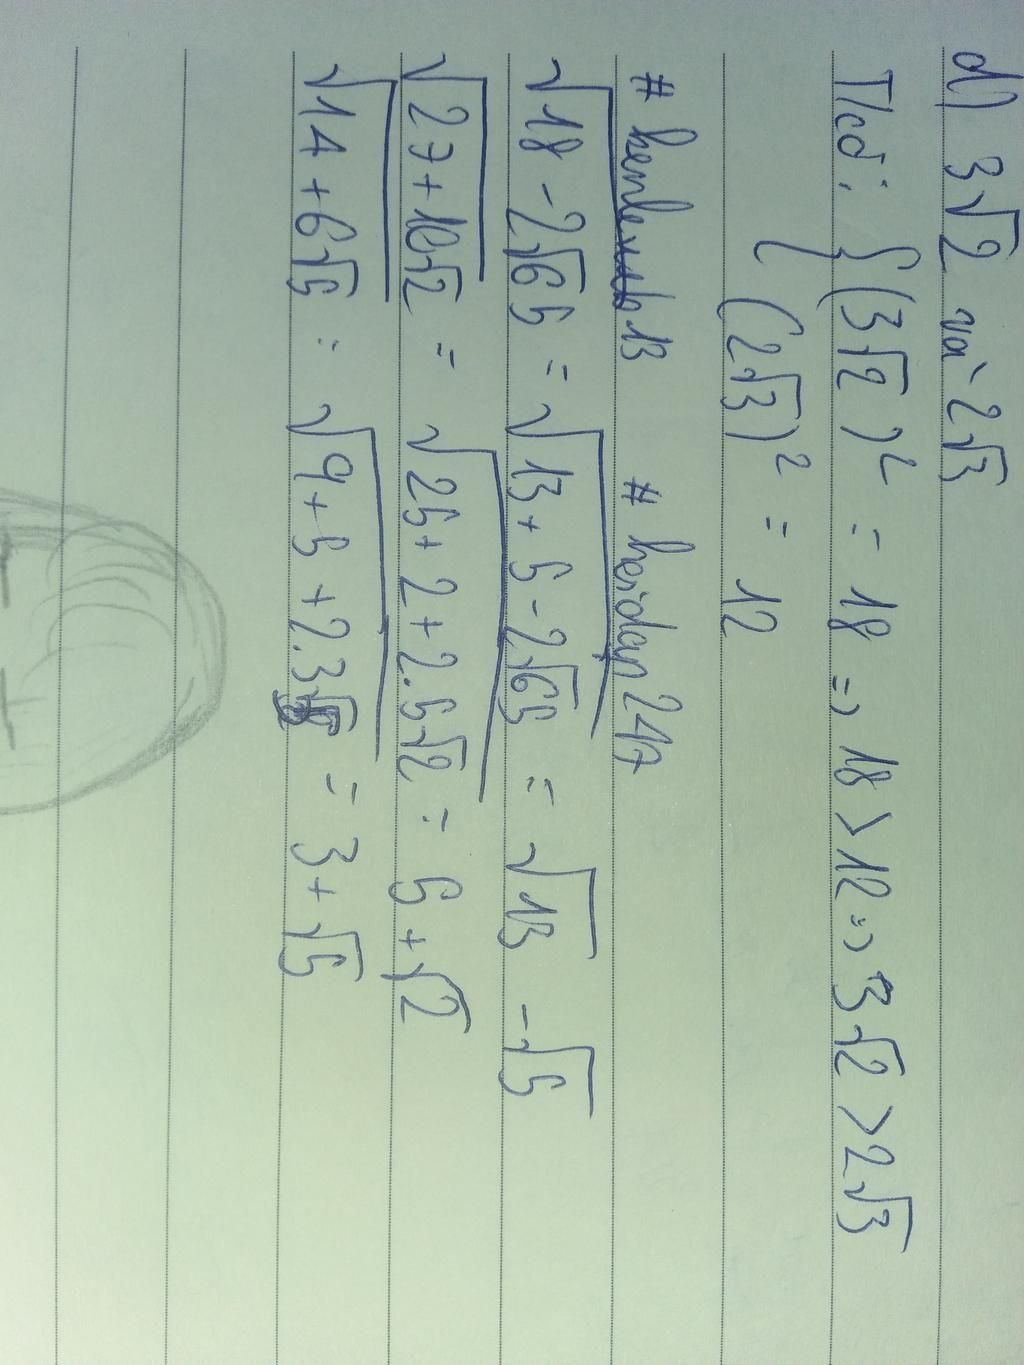 d) 3√2 và 2√3
T/có: { (3√2)² = 18 => 18 > 12 => 3√2 > 2√3
(2√3)² = 12
# kenlewb13 # hoidap247
√(18 - 2√65) = √(13 + 5 - 2√65) = √13 - √5
√(27 + 10√2) = √(25 + 2 + 2.5√2) = 5 + √2
√(14 + 6√5) = √(9 + 5 + 2.3√5) = 3 + √5